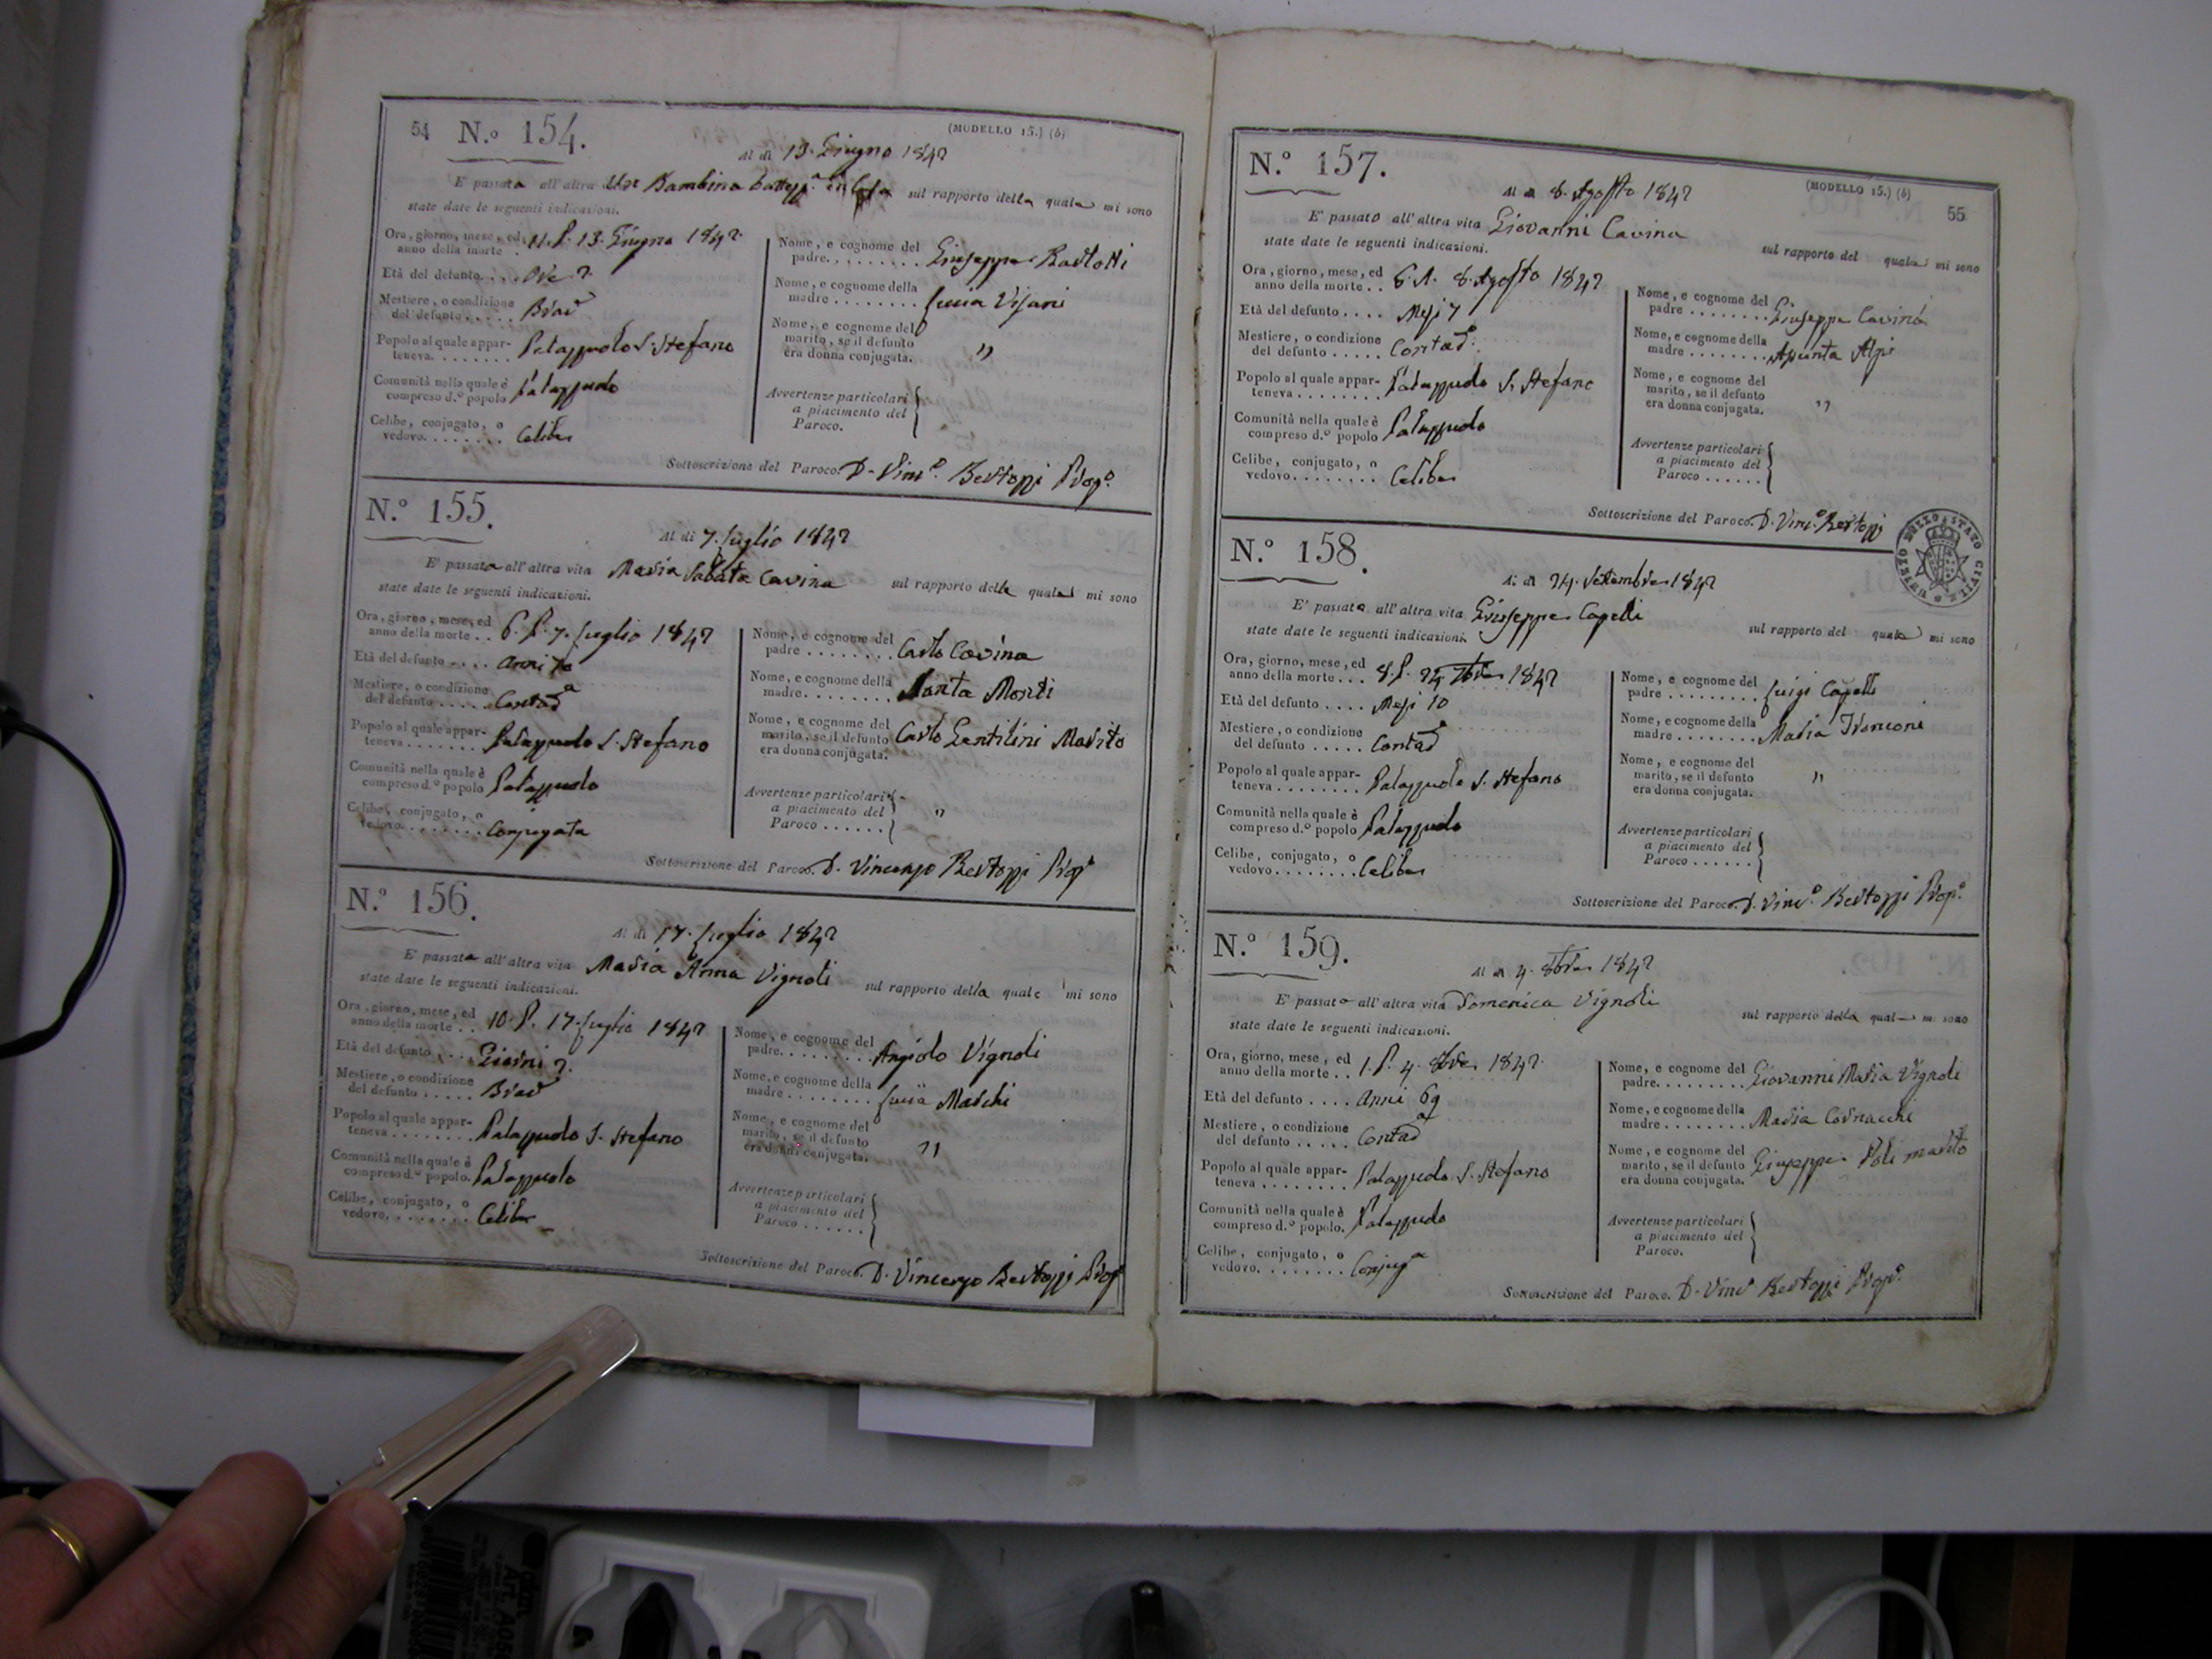 54 N.º 154. (MODELLO 15.) (b)
Al dì 13. Giugno 1842
E' passata all'altra Una Bambina battezz.a in Casa sul rapporto della quale mi sono
state date le seguenti indicazioni.
Ora, giorno, mese, ed
anno della morte . 11. P. 13. Giugno 1842.
Età del defunto. . . . Ore 2.
Mestiere, o condizione
del defunto . . . . .
Popolo al quale appar-
teneva. . . . . . . . Palazzuolo S. Stefano
Comunità nella quale è
compreso d.º popolo Palazzuolo
Celibe, conjugato, o
vedovo. . . . . . . . Celibe
Nome, e cognome del
padre. . . . . . . . . Giuseppe Bartolli
Nome, e cognome della
madre . . . . . . . . Lucia Visani
Nome, e cognome del
marito, se il defunto
era donna conjugata. "
Avvertenze particolari
a piacimento del
Paroco.
Sottoscrizione del Paroco. D. Vinc.º Bertozzi Prop.º
N.º 155.
Al dì 7. Luglio 1842
E' passata all'altra vita Maria Sabata Cavina sul rapporto della quale mi sono
state date le seguenti indicazioni.
Ora, giorno, mese, ed
anno della morte . . 6. P. 7. Luglio 1842
Età del defunto . . . . anni
Mestiere, o condizione
del defunto . . . . . Contad.a
Popolo al quale appar-
teneva . . . . . . . Palazzuolo S. Stefano
Comunità nella quale è
compreso d.º popolo Palazzuolo
Celibe, conjugato, o
vedovo. . . . . . . . Conjugata
Nome, e cognome del
padre . . . . . . . . Carlo Cavina
Nome, e cognome della
madre. . . . . . . . Santa Monti
Nome, e cognome del
marito, se il defunto Carlo Gentilini Marito
era donna conjugata.
Avvertenze particolari
a piacimento del "
Paroco . . . . . .
Sottoscrizione del Paroco. D. Vincenzo Bertozzi Prop.º
N.º 156.
Al dì 17. Luglio 1842
E' passata all'altra vita Maria Anna Vignoli sul rapporto della quale mi sono
state date le seguenti indicazioni.
Ora, giorno, mese, ed
anno della morte . . 10. P. 17. Luglio 1842
Età del defunto . . . Giorni 2.
Mestiere, o condizione
del defunto . . . . .
Popolo al quale appar-
teneva . . . . . . . . Palazzuolo S. Stefano
Comunità nella quale è
compreso d.º popolo. Palazzuolo
Celibe, conjugato, o
vedovo. . . . . . . . Celibe
Nome, e cognome del
padre. . . . . . . . . Angiolo Vignoli
Nome, e cognome della
madre . . . . . . . . Lucia Marchi
Nome, e cognome del
marito, se il defunto
era donna conjugata. "
Avvertenze particolari
a piacimento del
Paroco . . . . . .
Sottoscrizione del Paroco. D. Vincenzo Bertozzi Prop.º
N.º 157. (MODELLO 15.) (b) 55
Al dì 8. Agosto 1842
E' passato all'altra vita Giovanni Cavina sul rapporto del quale mi sono
state date le seguenti indicazioni.
Ora, giorno, mese, ed
anno della morte . . 6. A. 8. Agosto 1842
Età del defunto . . . . Mesi 7
Mestiere, o condizione
del defunto . . . . . Contad.e
Popolo al quale appar-
teneva . . . . . . . . Palazzuolo S. Stefano
Comunità nella quale è
compreso d.º popolo Palazzuolo
Celibe, conjugato, o
vedovo. . . . . . . . Celibe
Nome, e cognome del
padre . . . . . . . . Giuseppe Cavina
Nome, e cognome della
madre . . . . . . . . Assunta Alpi
Nome, e cognome del
marito, se il defunto
era donna conjugata. "
Avvertenze particolari
a piacimento del
Paroco . . . . . .
Sottoscrizione del Paroco. D. Vinc.º Bertozzi
UFIZIO DELLO STATO CIVILE
N.º 158.
Al dì 24. Settembre 1842
E' passato all'altra vita Giuseppe Capelli sul rapporto del quale mi sono
state date le seguenti indicazioni.
Ora, giorno, mese, ed
anno della morte . . . 8. P. 24 7bre 1842
Età del defunto . . . . Mesi 10
Mestiere, o condizione
del defunto . . . . . Contad.e
Popolo al quale appar-
teneva . . . . . . . . Palazzuolo S. Stefano
Comunità nella quale è
compreso d.º popolo Palazzuolo
Celibe, conjugato, o
vedovo. . . . . . . . Celibe
Nome, e cognome del
padre . . . . . . . . . Luigi Capelli
Nome, e cognome della
madre . . . . . . . . Maria Tronconi
Nome, e cognome del
marito, se il defunto
era donna conjugata. "
Avvertenze particolari
a piacimento del
Paroco . . . . . .
Sottoscrizione del Paroco. D. Vinc.º Bertozzi Prop.º
N.º 159.
Al dì 4. 8bre 1842
E' passata all'altra vita Domenica Vignoli sul rapporto della quale mi sono
state date le seguenti indicazioni.
Ora, giorno, mese, ed
anno della morte . . 1. P. 4. 8bre 1842.
Età del defunto . . . . Anni 69
Mestiere, o condizione
del defunto . . . . . Contad.a
Popolo al quale appar-
teneva . . . . . . . . Palazzuolo S. Stefano
Comunità nella quale è
compreso d.º popolo. Palazzuolo
Celibe, conjugato, o
vedovo. . . . . . . . Conjug.a
Nome, e cognome del
padre. . . . . . . . . Giovanni Maria Vignoli
Nome, e cognome della
madre . . . . . . . . Maria Cornacchi
Nome, e cognome del
marito, se il defunto Giuseppe Poli marito
era donna conjugata.
Avvertenze particolari
a piacimento del
Paroco.
Sottoscrizione del Paroco. D. Vinc.º Bertozzi Prop.º